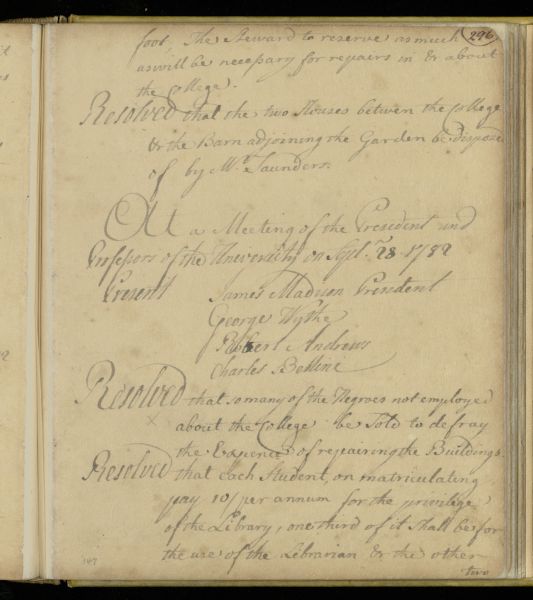 296
foot, The Steward to reserve as much
as will be necessary for repairs in & about
the College.
Resolved that the two Houses between the College
& the Barn adjoining the Garden be dispose
of by Mr. Saunders.
At a Meeting of the President and
Professors of the University on Sept. 28 1782
Present
James Madison President
George Wythe
Robert Andrews
Charles Bellini
Resolved that so many of the Negroes not employed
about the College be Sold to defray
the Expence of repairing the Buildings.
Resolved that each Student, on matriculating
pay 10/ per annum for the privilege
of the Library, one third of it shall be for
the use of the Librarian & the other
two
147